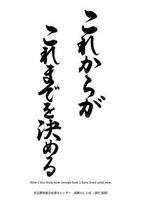 これからが
これまでを決める
How I live from now reveals how I have lived until now.